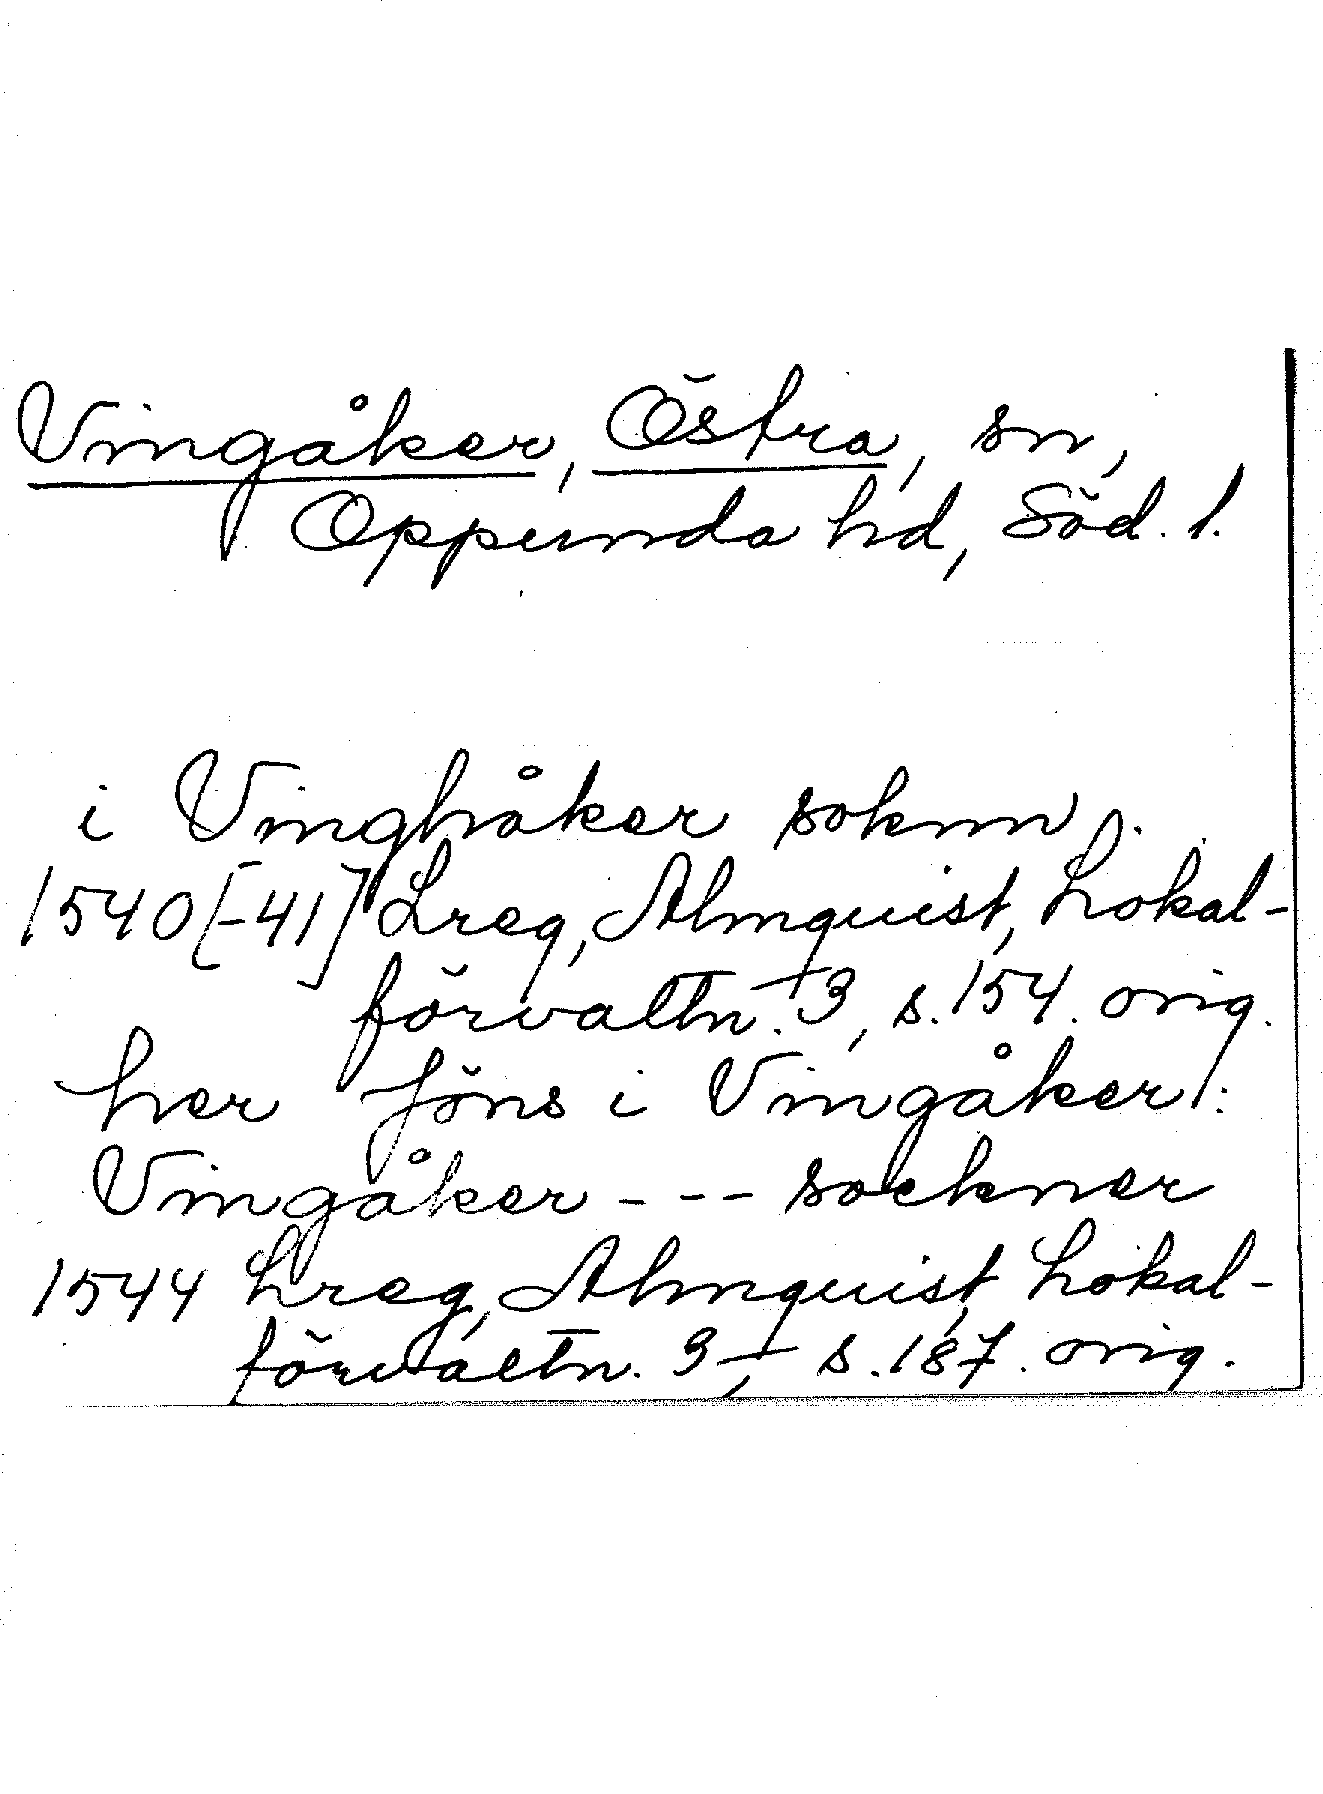 Vingåker, Östra, sn,
Oppunda hd, Söd. l.
i Vinghåker soknn.
1540[-41] Lreg, Almquist, Lokal-
förvaltn. 3, s. 154. orig.
her Jöns i Vingåker:
Vingåker --- sockner
1544 Lreg, Almquist, Lokal-
förvaltn. 3, s. 187. orig.